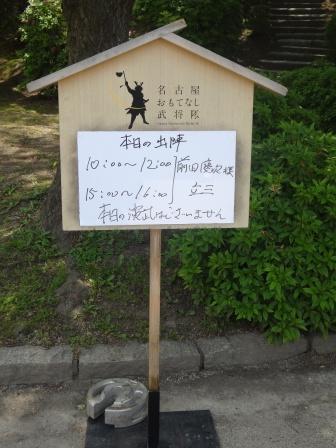 名古屋
おもてなし
武将隊
本日の出陣
10:00〜12:00 前田慶次様
15:00〜16:00 立三
本日の演武はございません